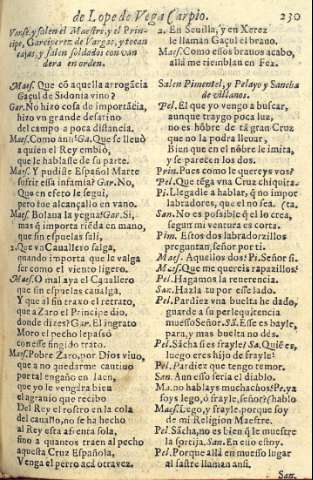 de Lope de Vega Carpio. 230
Vanse, y salen el Maestre, y el Prin-
cipe, Garciperez de Vargas, y tocan
cajas, y salen soldados con van
dera en orden.
Maes. Que cõ aquella arrogãcia
Gaçul de Sidonia vino?
Gar. No hizo cosa de importãcia,
hizo vn grande desatino
del campo a poca distancia.
Maes. Como ansi? Ga. Que se lleuò
a quien el Rey embiô,
que le hablasse de su parte.
Maes. Y pudiste Español Marte
sufrir essa infamia? Gar. No,
Que en efeto le seguì,
pero fue alcançallo en vano.
Maes. Bolaua la yegua? Gar. Si,
mas q̃ importa riẽda en mano,
que sin espuelas salì,
2. Que vn Cauallero salga,
quando importa que le valga
ser como el viento ligero.
Maes. O mal aya el Cauallero
que sin espuelas caualga,
Y que al fin traxo el retrato,
que a Zaro el Principe dio,
donde dizes? Gar. El ingrato
Moro el pecho le passò
con esse fingido trato.
Maes. Pobre Zaro, por Dios viuo,
que a no quedarme cautiuo
por tal engaño en Iaen,
que yo le vengara bien
el agrauio que recibo
Del Rey el rostro en la cola
del cauallo, no se ha hecho
al Rey esta afrenta sola,
sino a quantos traen al pecho
aquesta Cruz Española,
Venga el perro acà otra vez.
2. En Seuilla, y en Xerez
le llaman Gaçul el brauo.
Maes. Como essos brauos acabo,
allà me tiemblan en Fez.
Salen Pimentel, y Pelayo y Sancha
de villanos.
Pel. El que yo vengo a buscar,
aunque traygo poca luz,
no es hõbre de tã gran Cruz
que no la podra lleuar,
Bien que en el nõbre le imita,
y se parecen los dos.
Prin. Pues como le quereys vos?
Pel. Que tẽga vna Cruz chiquita.
Pi. Llegadle a hablar, q̃ no impor
labradores, que el no sea. (ta.
San. No es possible q̃ el lo crea,
segun mi ventura es corta.
Pim. Estos dos labradorzillos
preguntan, señor por ti.
Maes. Aquellos dos? Pi. Señor si.
Maes. Que me quereis rapazillos?
Pel. Hagamos la reuerencia.
San. Hazla tu por esse lado.
Pel. Pardiez vna buelta he dado,
guarde a su perlequitencia
muesso Señor. Sã. Esse es bayle,
para, y mas buelta no dès.
Pel. Sãcha si es frayle? Sa. Quiẽ es,
luego eres hijo de frayle?
Pel. Pardiez que tengo temor.
San. Aun esso seria el diablo.
Ma. no hablays muchachos? Pe. ya
soys lego, ô frayle, señor? hablo
Maes. Lego, y frayle, porque soy
de mi Religion Maestre.
Pel. Sãcha, no es bien q̃ le muestre
la sortija. San. En esso estoy.
Pel. Porque allà en muesso lugar
al sastre llaman ansi.
San.